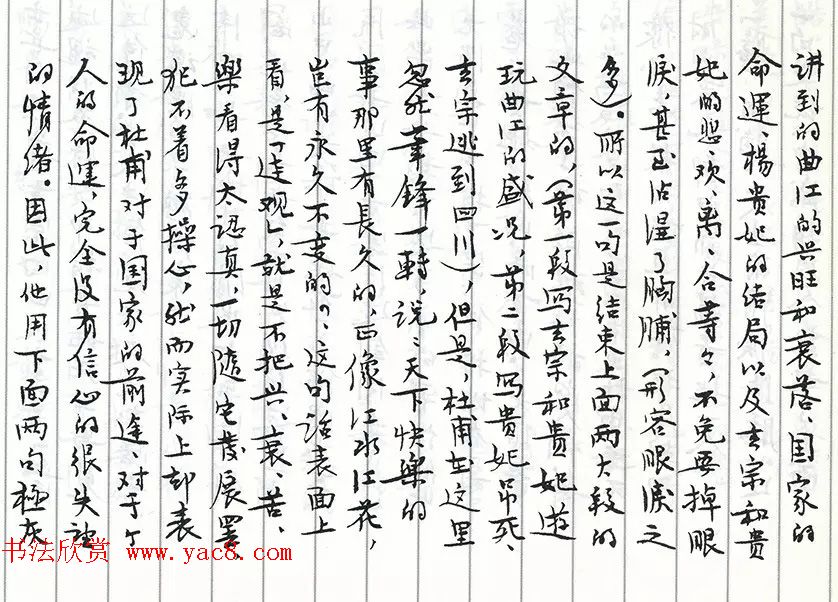 讲到的曲江的兴旺和衰落、国家的
命運、楊貴妃的结局以及玄宗和貴
妃的悲、欢、离、合等々，不免要掉眼
淚，甚至沾湿了胸脯，（形容眼淚之
多）。所以这一句是结束上面两大段的
文章的，（第一段写玄宗和貴妃遊
玩曲江的盛况，第二段写貴妃吊死、
玄宗逃到四川），但是，杜甫在这里
忽然筆鋒一轉，说：天下快樂的
事那里有長久的，正像江水江花，
豈有永久不变的？，这句话表面上
看，是「达观」，就是不把兴、衰、苦、
樂看得太認真，一切隨它發展罢
犯不着多操心，然而实际上却表
现了杜甫对于国家的前途、对于个
人的命運，完全没有信心的很失望
的情绪。因此，他用下面两句極灰
书法欣赏 www.yac8.com